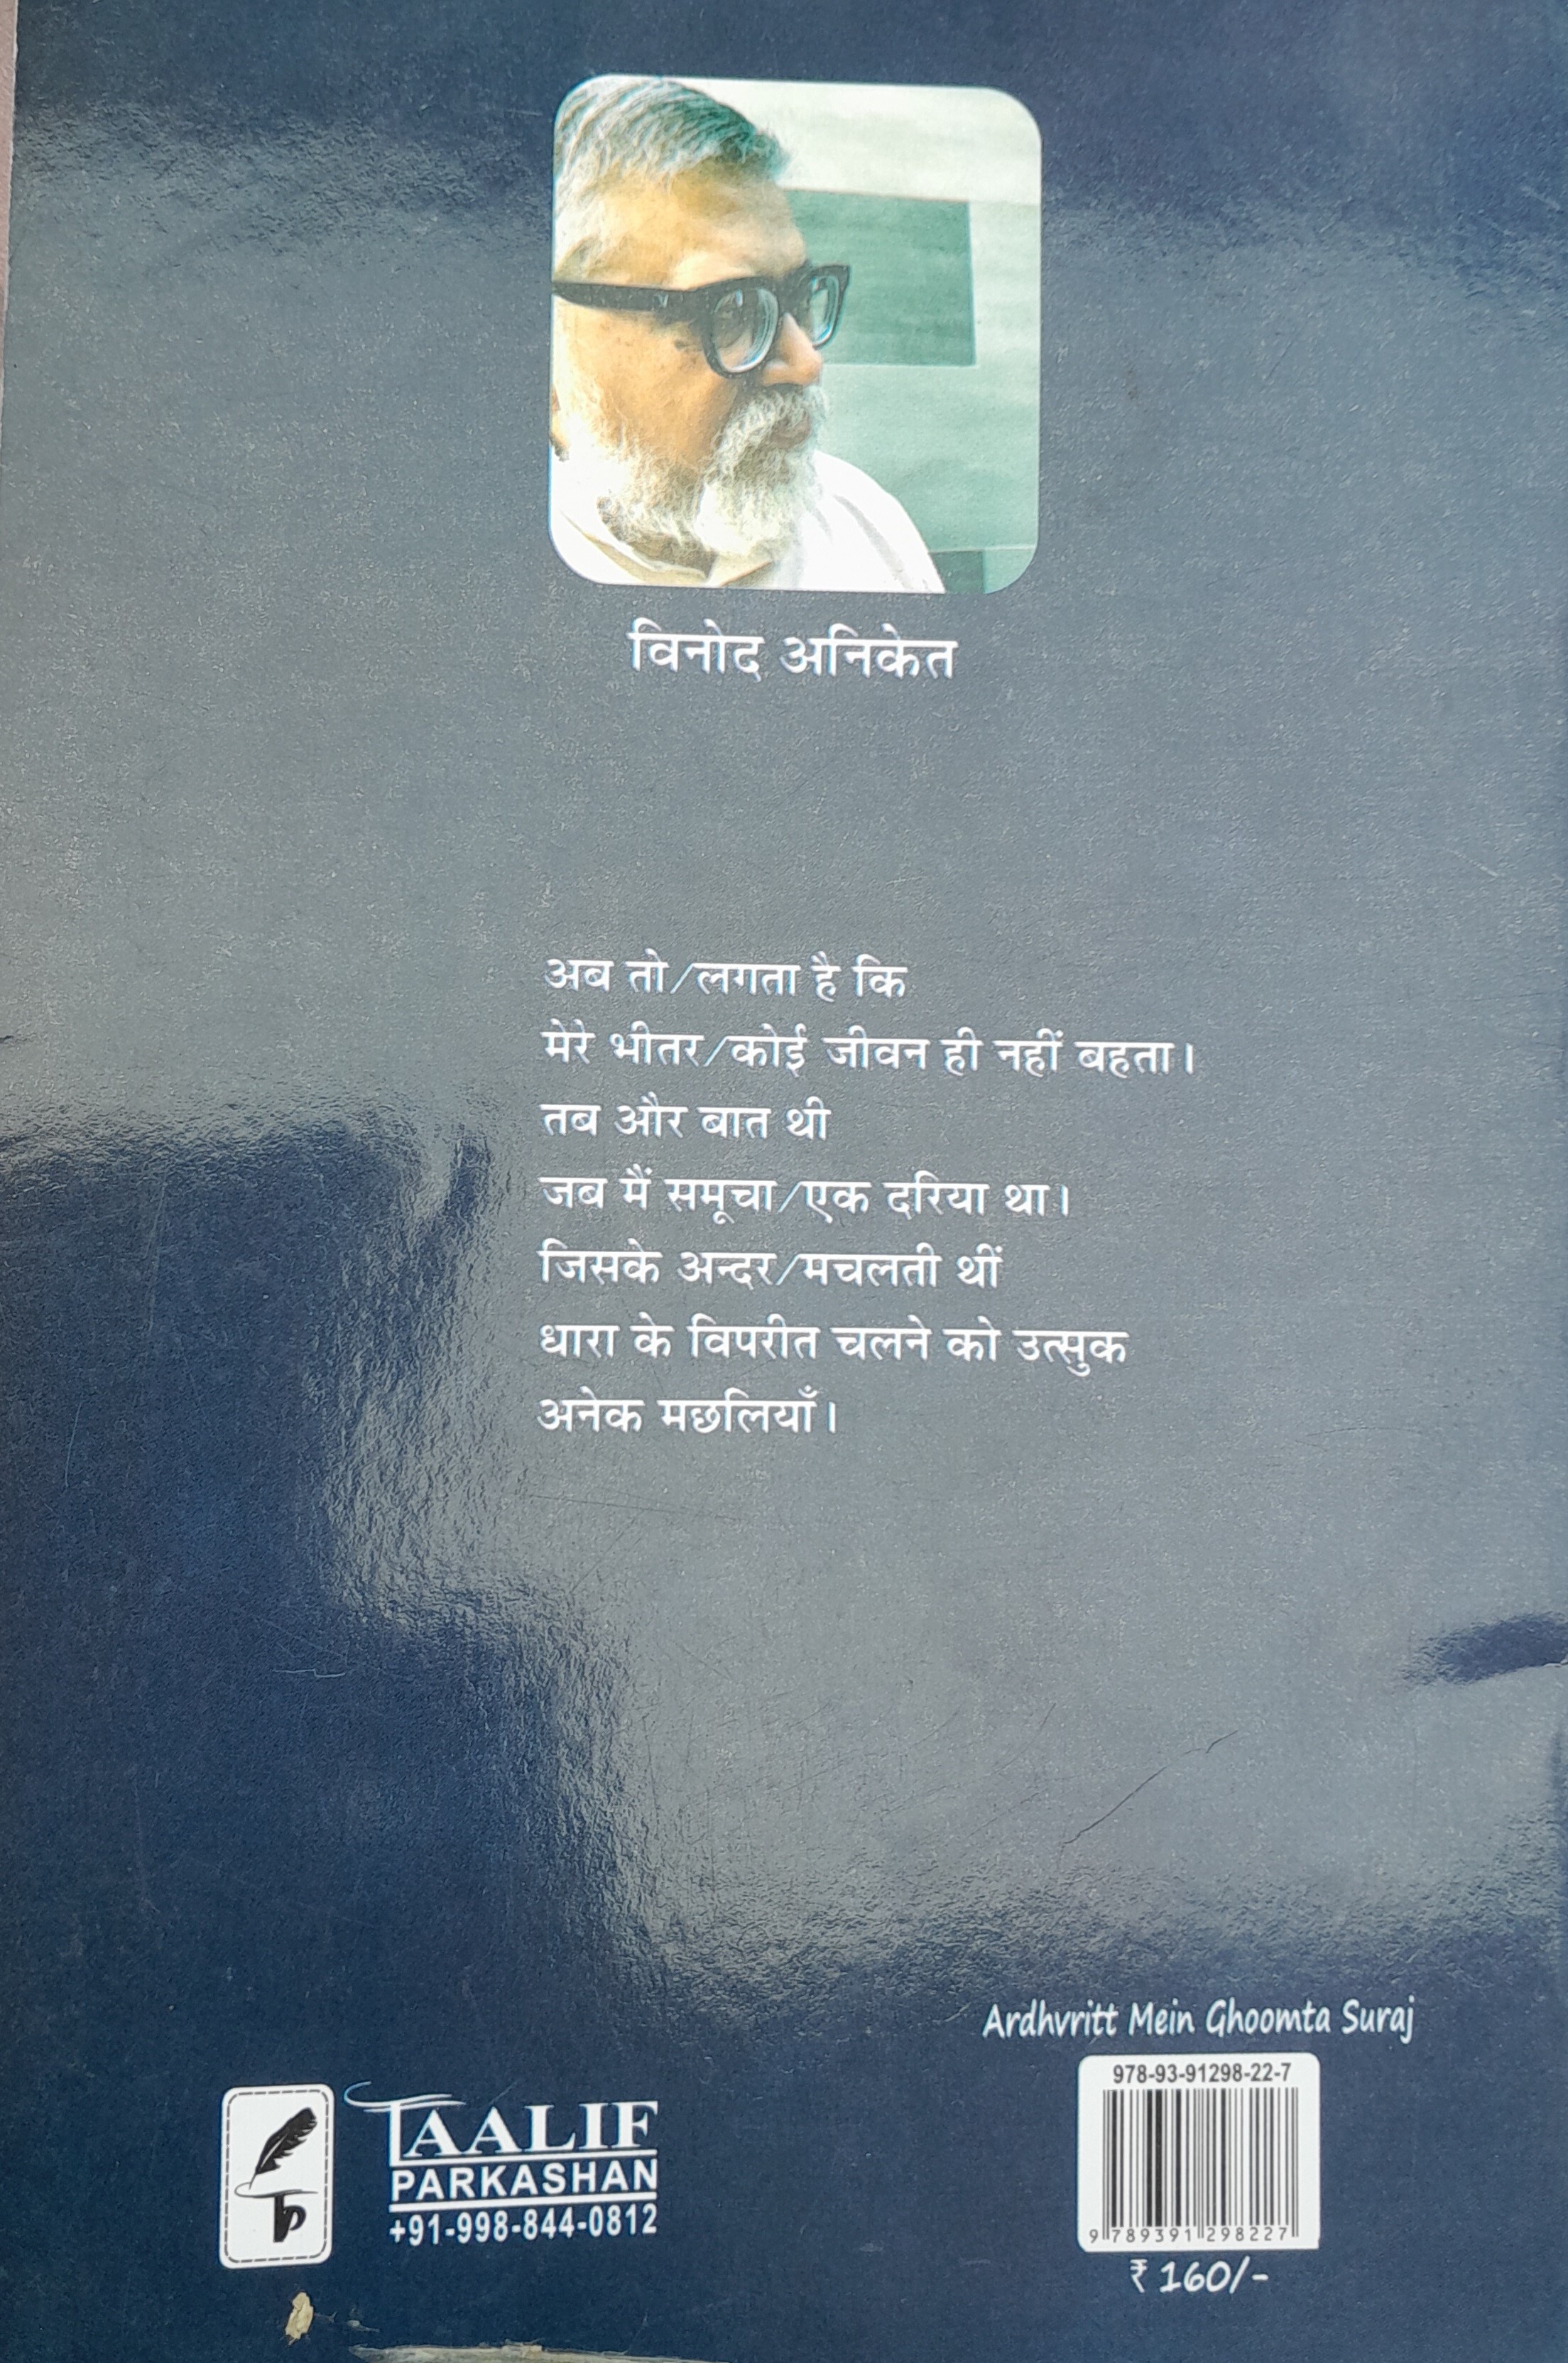 विनोद अनिकेत
अब तो/लगता है कि
मेरे भीतर/कोई जीवन ही नहीं बहता।
तब और बात थी
जब मैं समूचा/एक दरिया था।
जिसके अन्दर/मचलती थीं
धारा के विपरीत चलने को उत्सुक
अनेक मछलियाँ।
Ardhvritt Mein Ghoomta Suraj
978-93-91298-22-7
9 789391 298227
₹ 160/-
tp
TAALIF
PARKASHAN
+91-998-844-0812